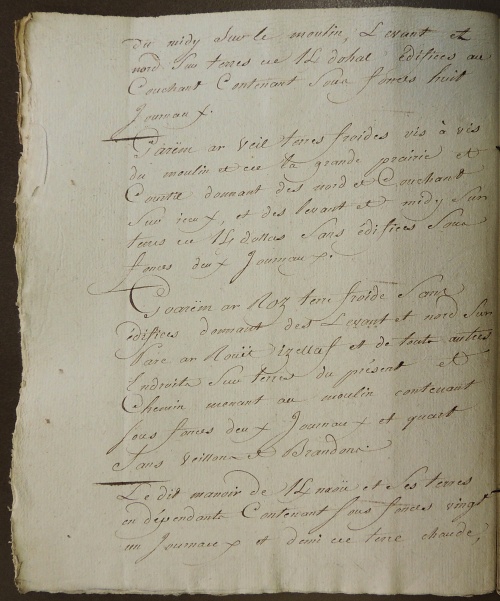 du midy avec le moulin, Levant et
nord sur terres de édifices au
Couchant Contenant sous fonces huit
Journaux.
Garëm ar Veil terres froides vis à vis
du moulin et de la grande prairie et
Courtil donnant des nord et Couchant
Sur ieux, et des Levant et midy sur
terres de Sans édifices Sous
fonces deux Journaux.
Gvarëm ar Roz terre froide Sans
édifices donnant des Levant et nord sur
Parc ar Rouët Izellaf et de touts autres
Endroits Sur terres du présent et
Chemin menant au moulin contenant
sous fonces deux Journaux et quart
Sans Veillons et Brandons.
Le dit manoir de et Ses terres
en dépendants Contenant Sous fonces vingt
un Journaux et demi de terre chaude,